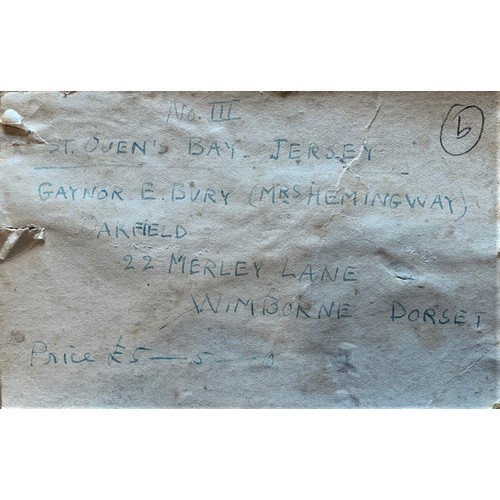 No. III
b
ST. OUEN'S BAY - JERSEY
GAYNOR E. BURY (MRS HEMINGWAY)
OAKFIELD
22 MERLEY LANE
WIMBORNE DORSET
Price £5 — 5 —